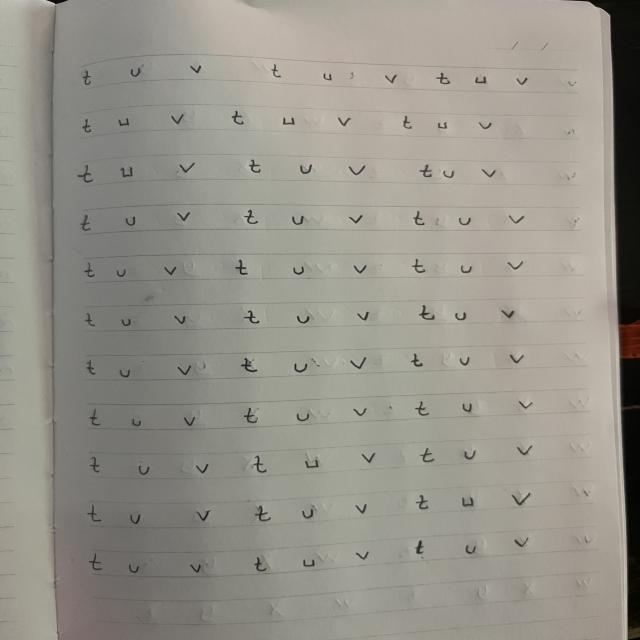 t u v t u v t u v
t u v t u v t u v
t u v t u v t u v
t u v t u v t u v
t u v t u v t u v
t u v t u v t u v
t u v t u v t u v
t u v t u v t u v
t u v t u v t u v
t u v t u v t u v
t u v t u v t u v